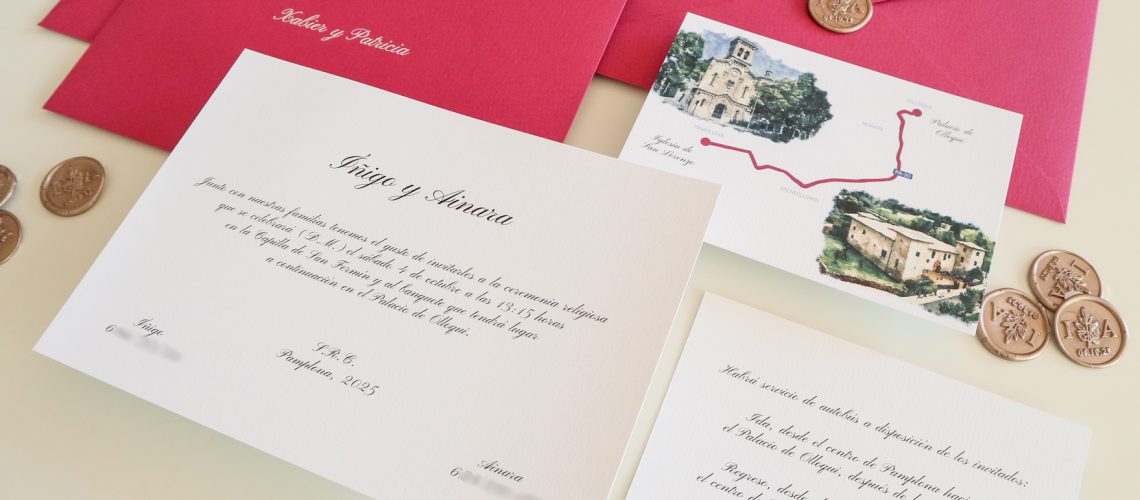 Xabier y Patricia
Íñigo y Ainara
Junto con nuestras familias tenemos el gusto de invitarles a la ceremonia religiosa
que se celebrará (D.M.) el sábado 4 de octubre a las 13:15 horas
en la Capilla de San Fermín y al banquete que tendrá lugar
a continuación en el Palacio de Ollequi.
Íñigo
6
S.R.C.
Pamplona, 2025
Ainara
6
PAMPLONA
Iglesia de
San Lorenzo
HUARTE
MENDILLORRI
PA-30
Palacio de
Ollequi
Habrá servicio de autobús a disposición de los invitados:
Ida, desde el centro de Pamplona
el Palacio de Ollequi, después de
Regreso, desde
el centro de
I A